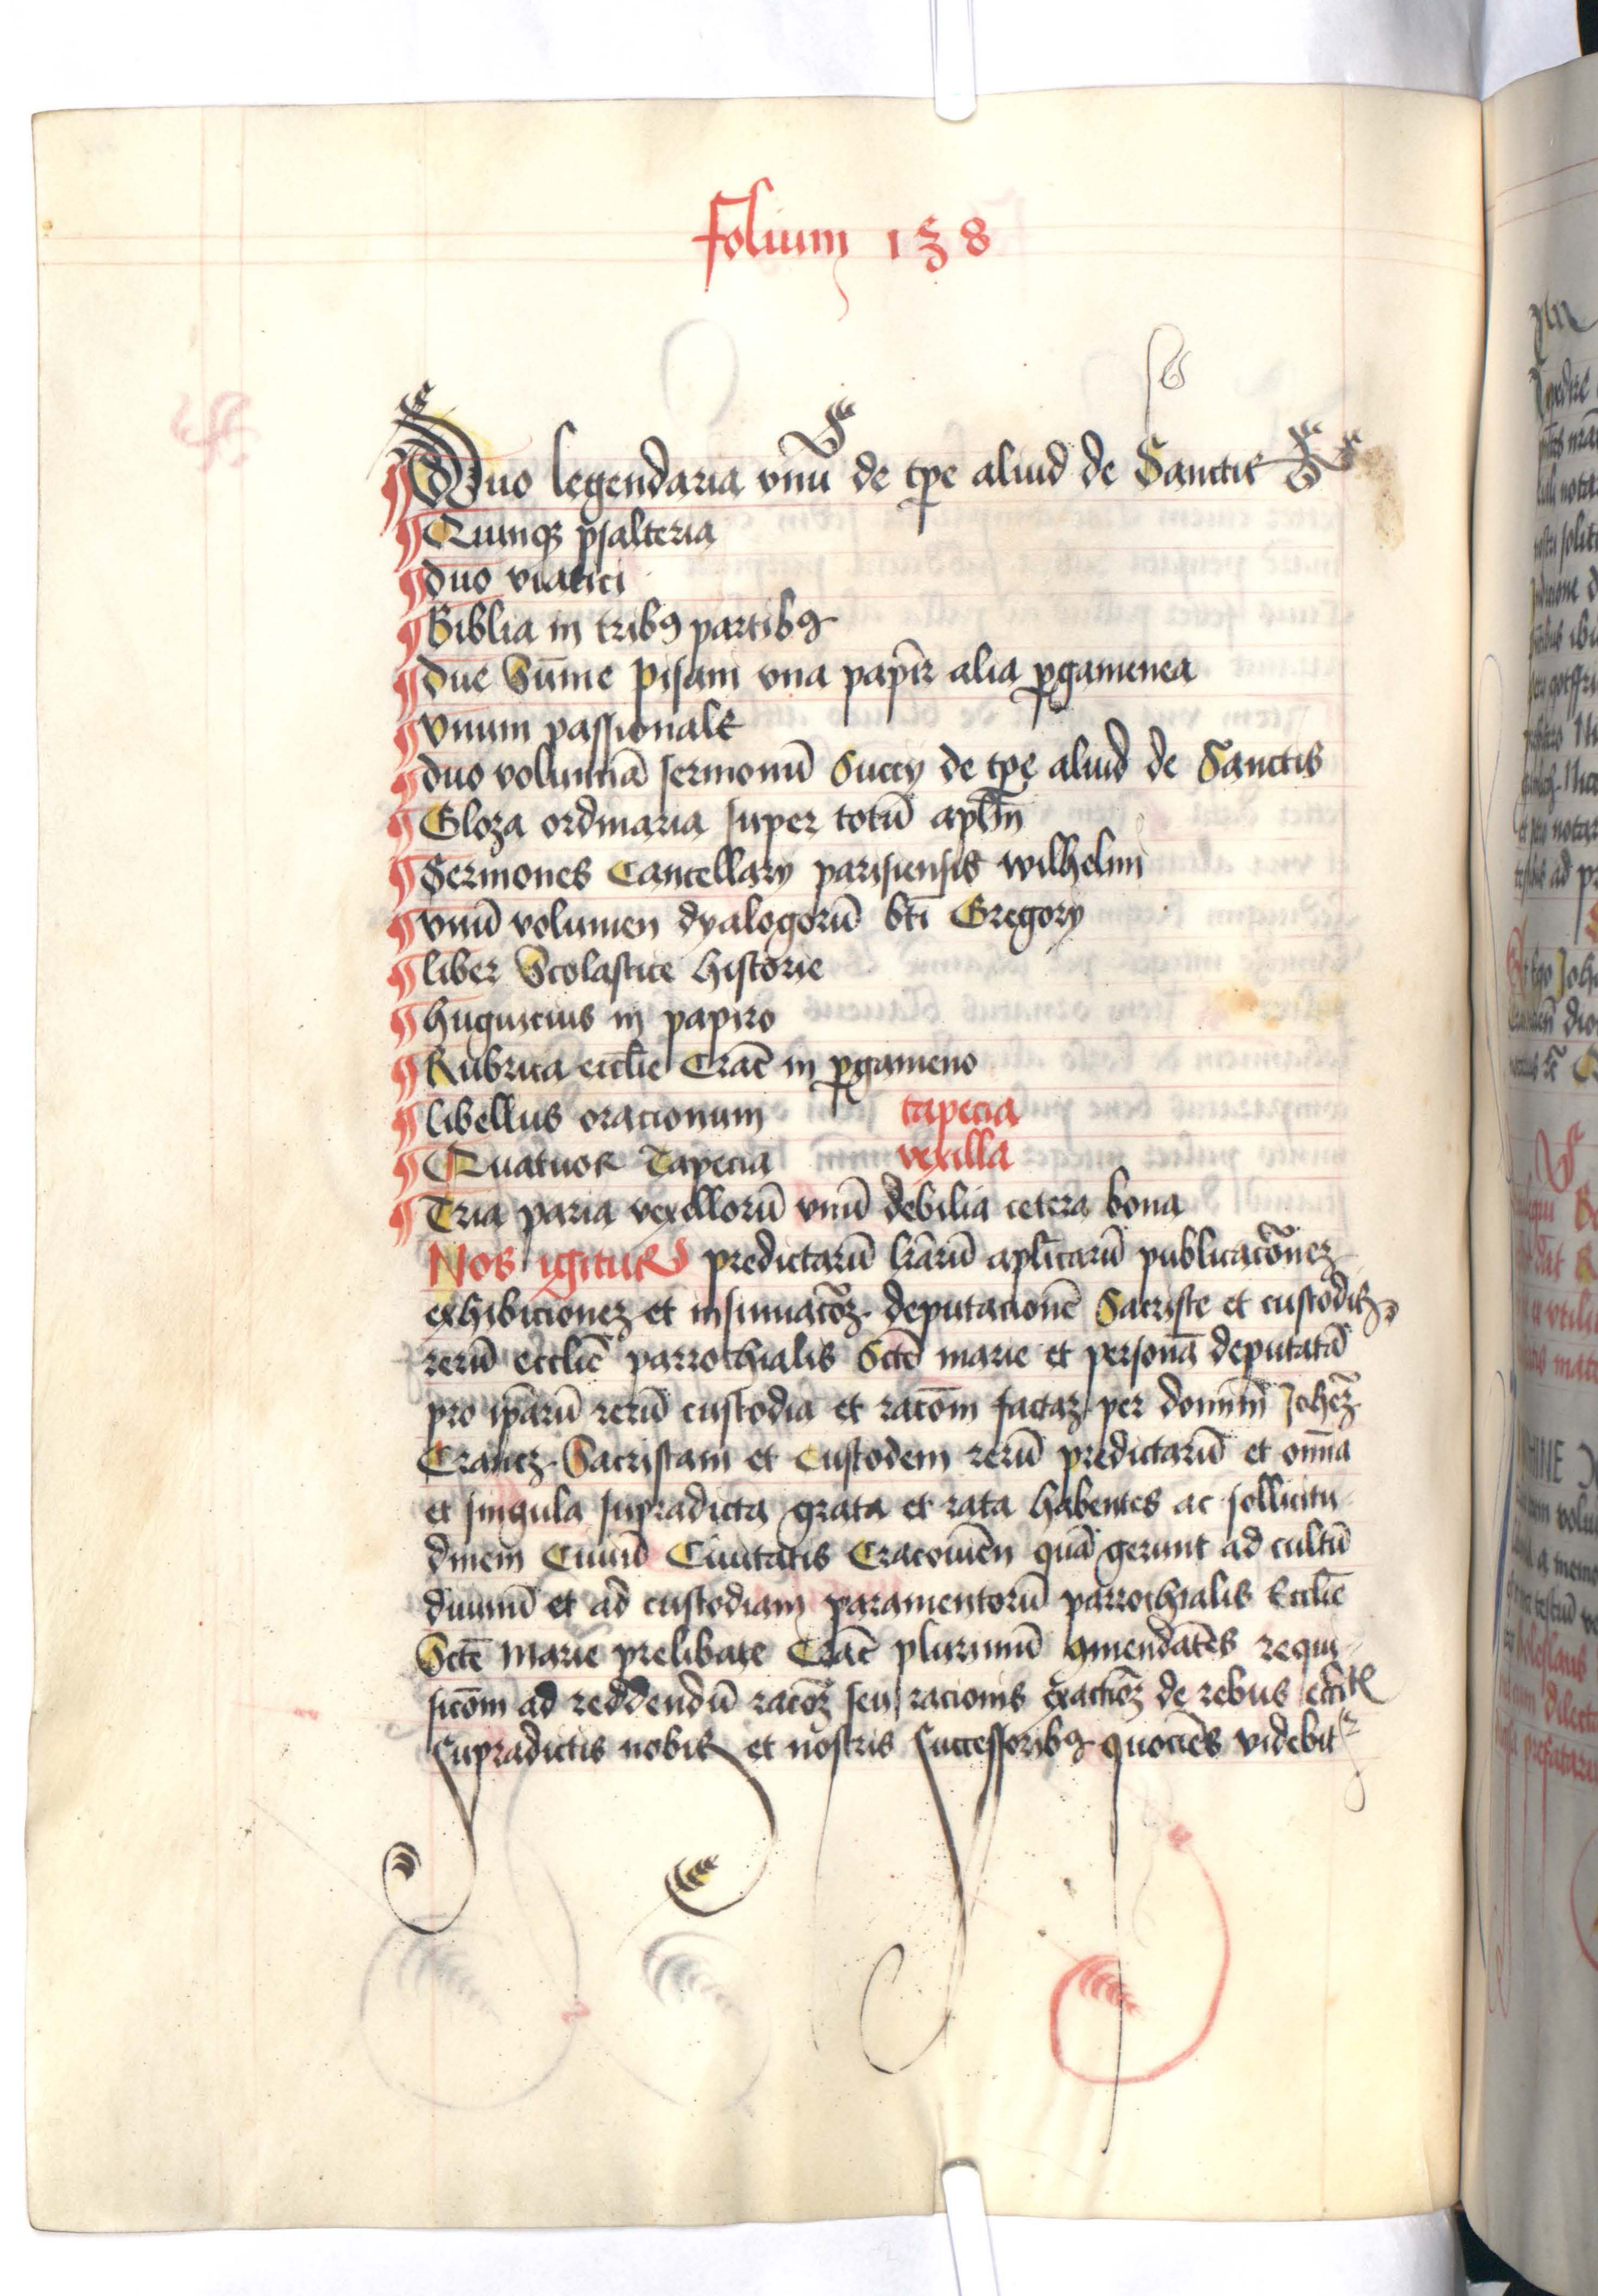 Folium 138
Duo legendaria vnū de tpe aliud de Sanctis
Quinqꝫ psalteria
duo viatici
Biblia in tribꝰ partibꝰ
due Sūme pisani vna papir alia ꝑgamenea
vnum passionale
duo voluminā sermonū Succy de tpe aliud de Sanctis
Gloza ordinaria super totū aplm̄
Sermones Cancellary parisiensis wilhelmi
vnū volumen dyalogorū bti Gregory
liber Scolastice historie
hugwicius in papiro
Rubrica ecclie Crac̄ in ꝑgameno
libellus oracionum tapecia
Quatuor Tapecia vexilla
Tria paria vexillorū vnū debilia cetera bona
Nos igitur predictarū lrārū aplicarū publicacōnez
exhibicionez et insinuacōꝫ deputacionē Sacriste et custodis
rerū ecclie parrochialis Scte marie et personā deputatā
pro ipārū rerū custodia et racōm factaꝫ per domīm Johēꝫ
Crancz Sacristam et Custodem rerū predictarū et om̄ia
et singula supradicta grata et rata habentes ac sollicitu
dinem Ciuiū Ciuitatis Cracouien̄ quā gerunt ad cultū
diuinū et ad custodiam paramentorū parrochialis Ecclie
Scte Marie prelibate Crac̄ plurimū ꝯmendātes requi
sicōm ad reddendū racōꝫ seu racionis exactiōꝫ de rebus eccie
Supradictis nobis et nostris Successoribꝰ quociēs videbit